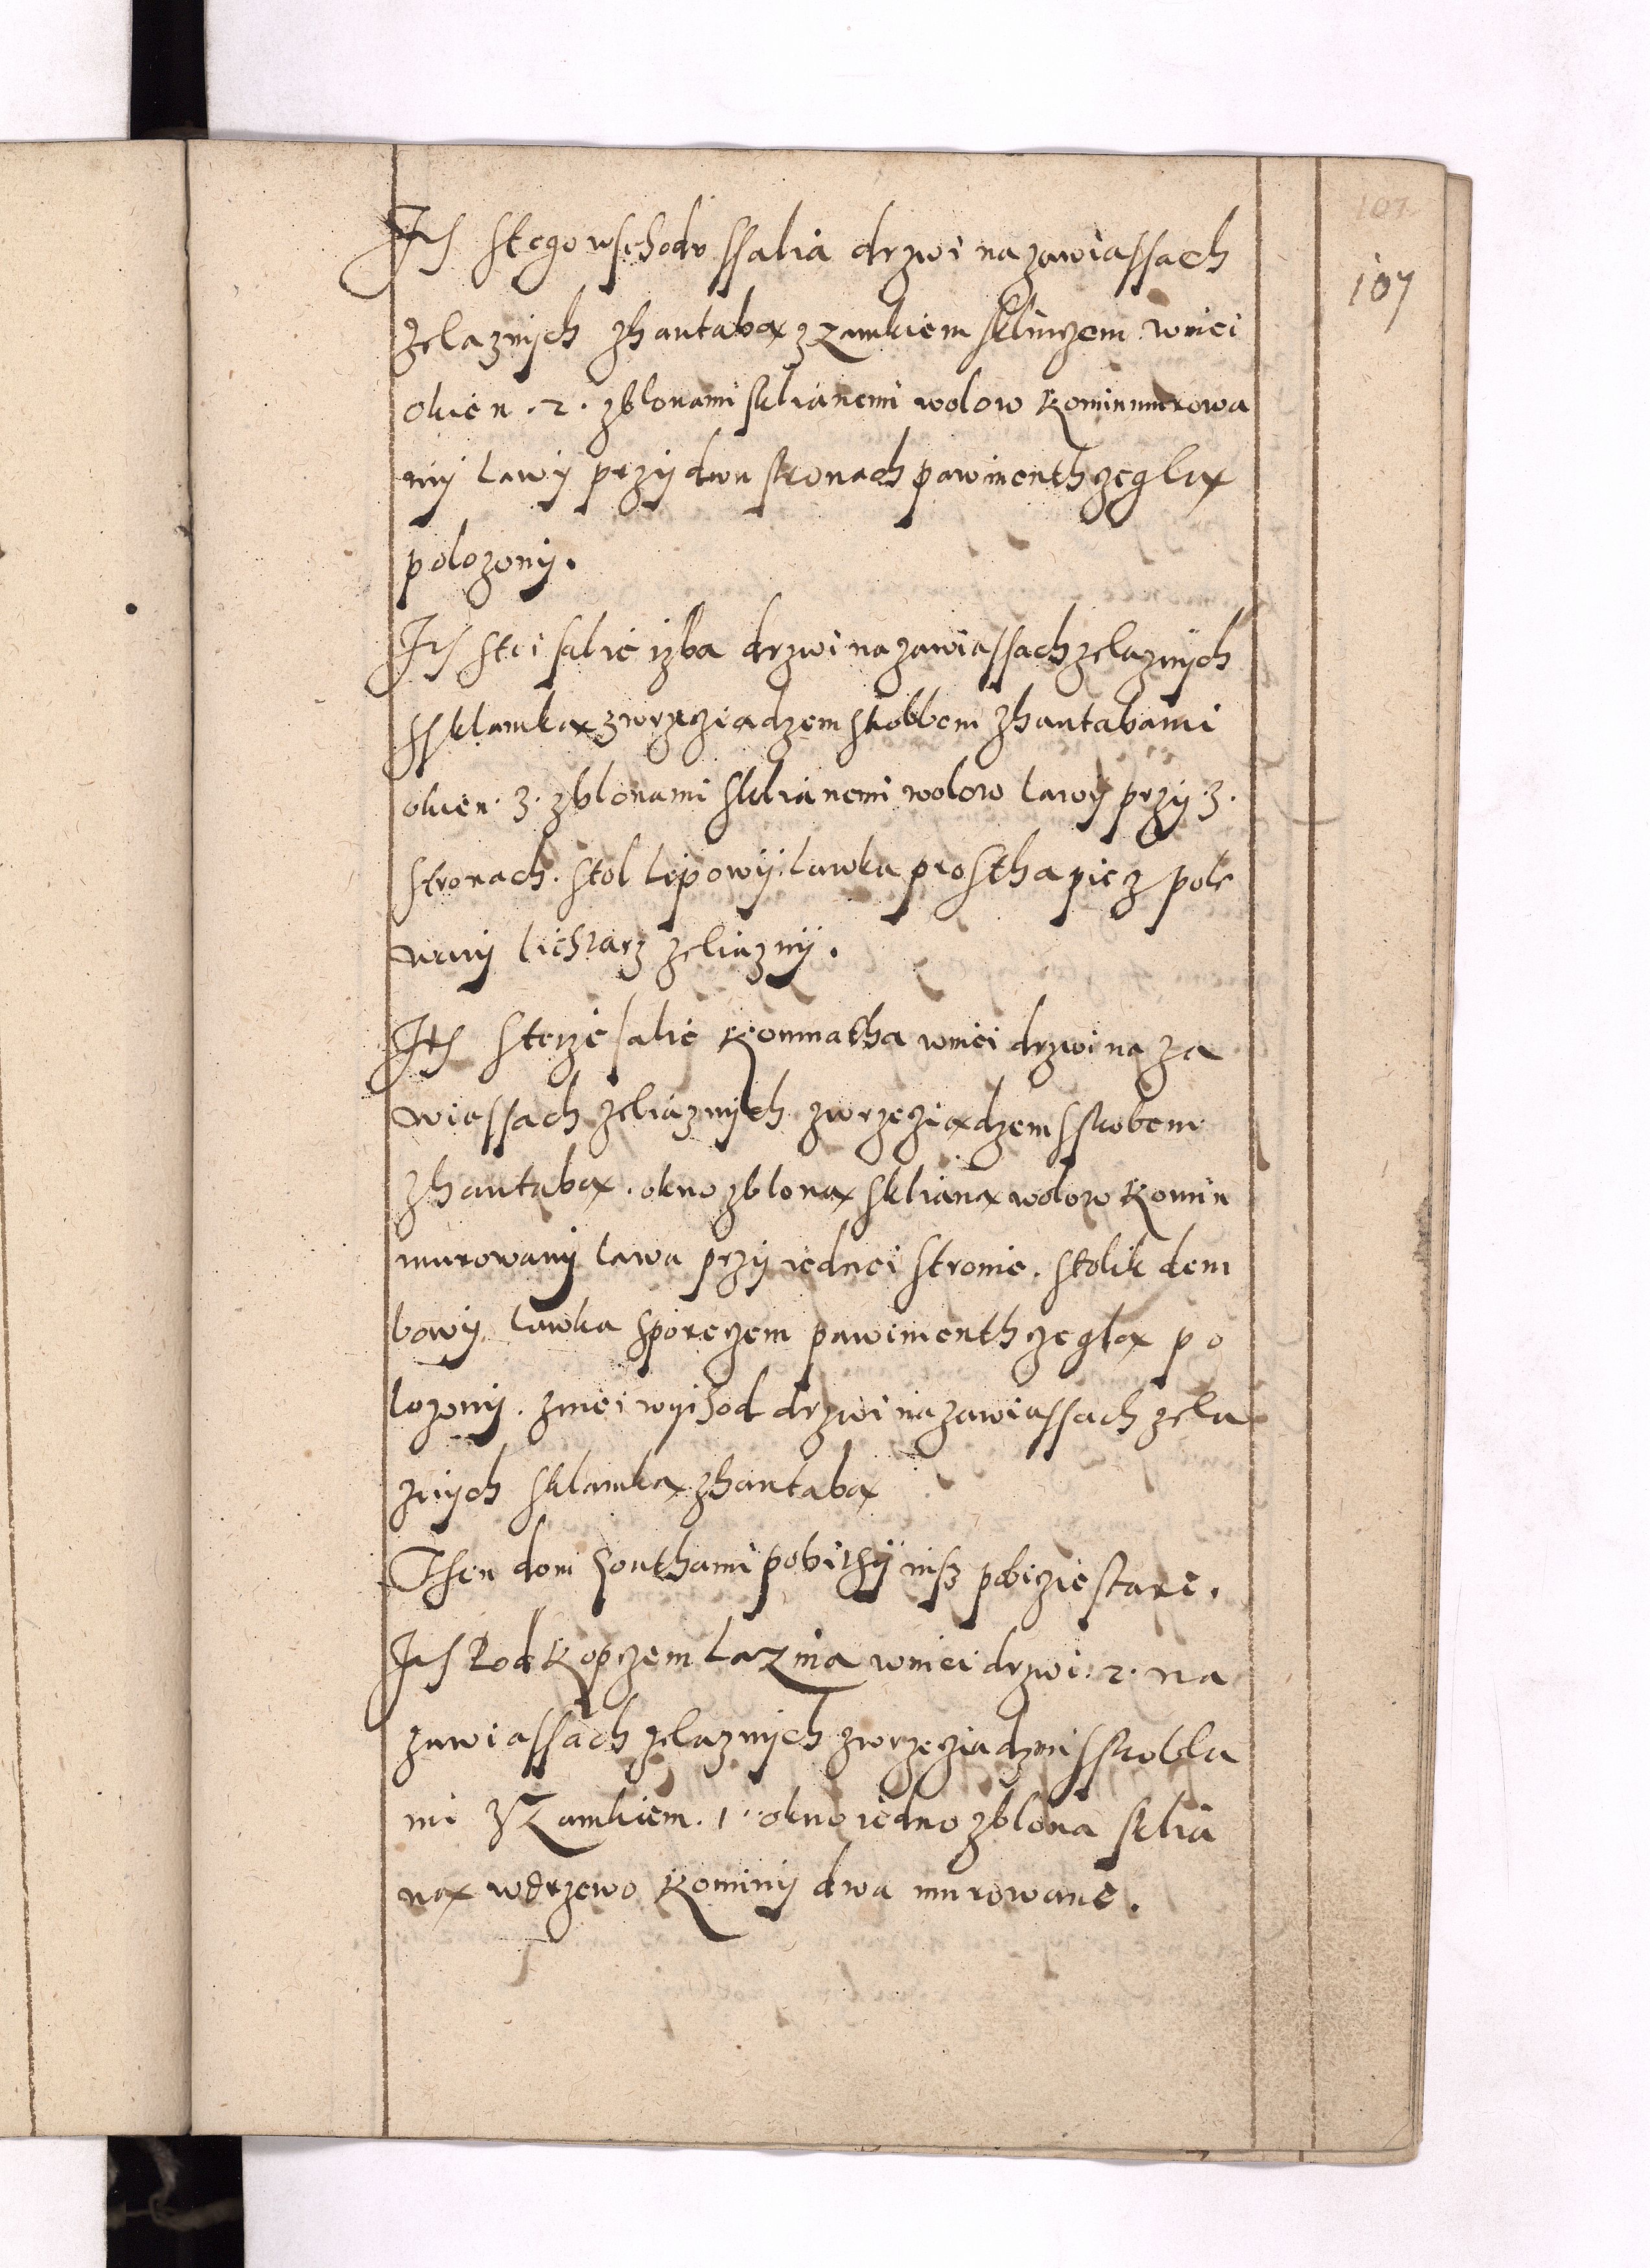 107
107
Its Stego wschodu ssalia drzwi na zawiassach
zelaznÿch zhantabax z zamkiem skliuczem wniei
okien .2. zblonami sklianemi wolow kominmurowa
nÿ lawÿ przÿ dwu stronach pawimenth zeglax
polozonÿ.
Its stei salie izba drzwi na zawiassach zelaznÿch
ssklamkax zwrzecziadzem skoblem zhantabami
okien .3. zblonami sklianemi wolow lawÿ przÿ .3.
stronach. stol lipowÿ. lawka prostha piecz pole
wanÿ lichtarz zeliaznÿ.
Its Steize salie Komnatha wniei drzwi na za
wiassach zeliaznÿch zwrzecziadzem sskobem
zhantabax. okno zblonax sklianax wolow komin
murowanÿ lawa przÿ iednei stronie. stolik dem
bowÿ lawka sporeczem pawimenth zeglax po
lozonÿ. zniei wychod drzwi na zawiassach zela
znÿch sklamkax zhantabax
Then dom Gonthami pobithÿ insz pobiczie stare.
Its Pod kopczem Laznia wniei drzwi .2. na
zawiassach zelaznÿch zwrzecziadzmi sskobla
mi z Zamkiem .1. okno iedno zblona sklia
nax wdrzewo kominÿ dwa murowane.